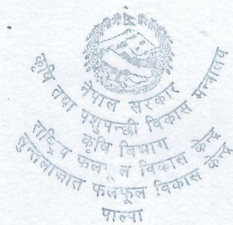 नेपाल सरकार
कृषि तथा पशुपन्छी विकास मन्त्रालय
कृषि विभाग
राष्ट्रिय फलफूल विकास केन्द्र
सुन्तलाजात फलफूल विकास केन्द्र
पाल्पा